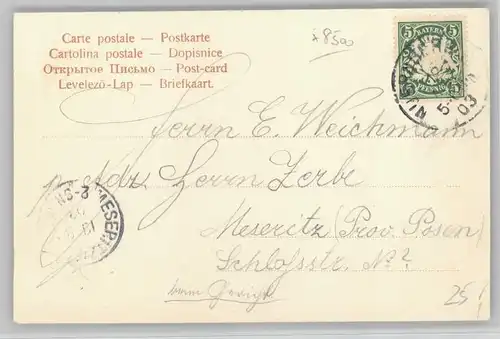 x 8500
Carte postale — Postkarte
Cartolina postale — Dopisnice
Открытое Письмо — Post-card
Levelező-Lap — Briefkaart.
5 BAYERN 5
5 PFENNIG 5
03
Herrn E. Weichmann
p. Adr. Herrn Zerbe
MESERITZ
Meseritz (Prov. Posen)
Schlossstr. No ?
beim Gericht
25